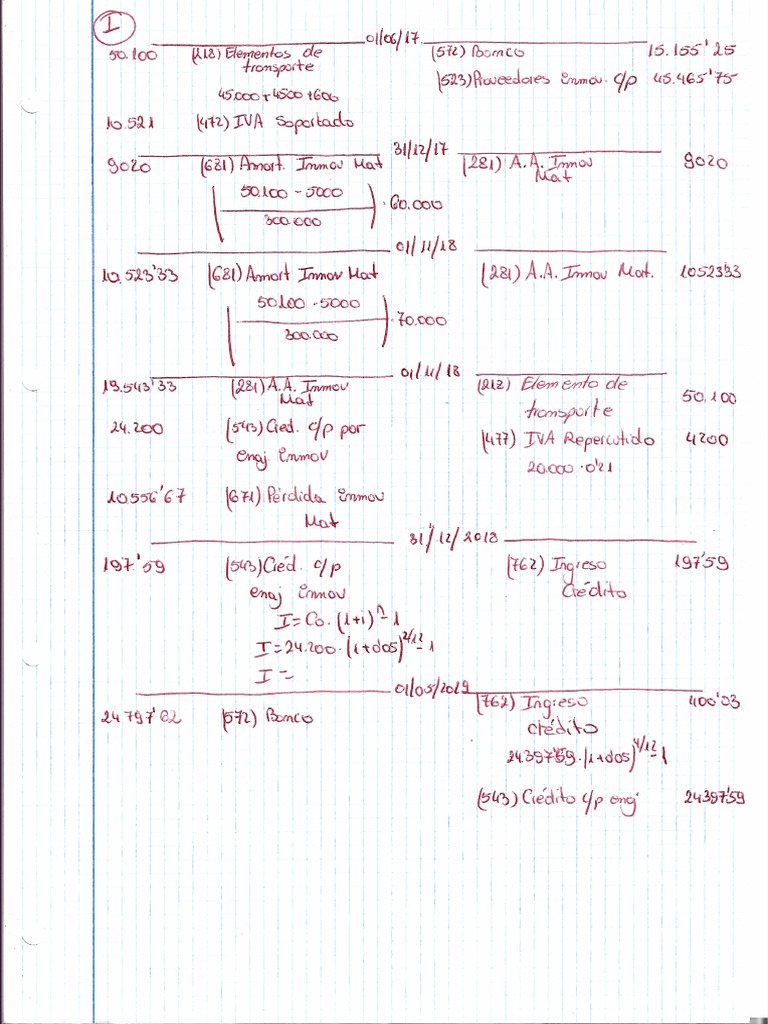 I
01/06/17
50.100 (218) Elementos de transporte (572) Banco 15.155'25
45.000 + 4500 + 600 (523) Proveedores inmov. c/p 45.465'75
10.521 (472) IVA Soportado
31/12/17
9020 (681) Amort. Inmov Mat (281) A.A. Inmov Mat 9020
(50.100 - 5000 / 300.000) · 60.000
01/11/18
10.523'33 (681) Amort Inmov Mat (281) A.A. Inmov Mat. 10523'33
(50.100 - 5000 / 300.000) · 70.000
01/11/18
19.543'33 (281) A.A. Inmov Mat (218) Elemento de transporte 50.100
24.200 (543) Cred. c/p por enaj inmov (477) IVA Repercutido 4200
20.000 · 0'21
10.556'67 (671) Pérdida inmov Mat
31/12/2018
197'59 (543) Créd. c/p enaj inmov (762) Ingreso Crédito 197'59
I = Co. (1+i)^n - 1
I = 24.200 · (1+0'05)^2/12 - 1
I =
01/05/2019
24797'62 (572) Banco (762) Ingreso crédito 400'03
24.397'59 · (1+0'05)^4/12 - 1
(543) Crédito c/p enaj 24397'59